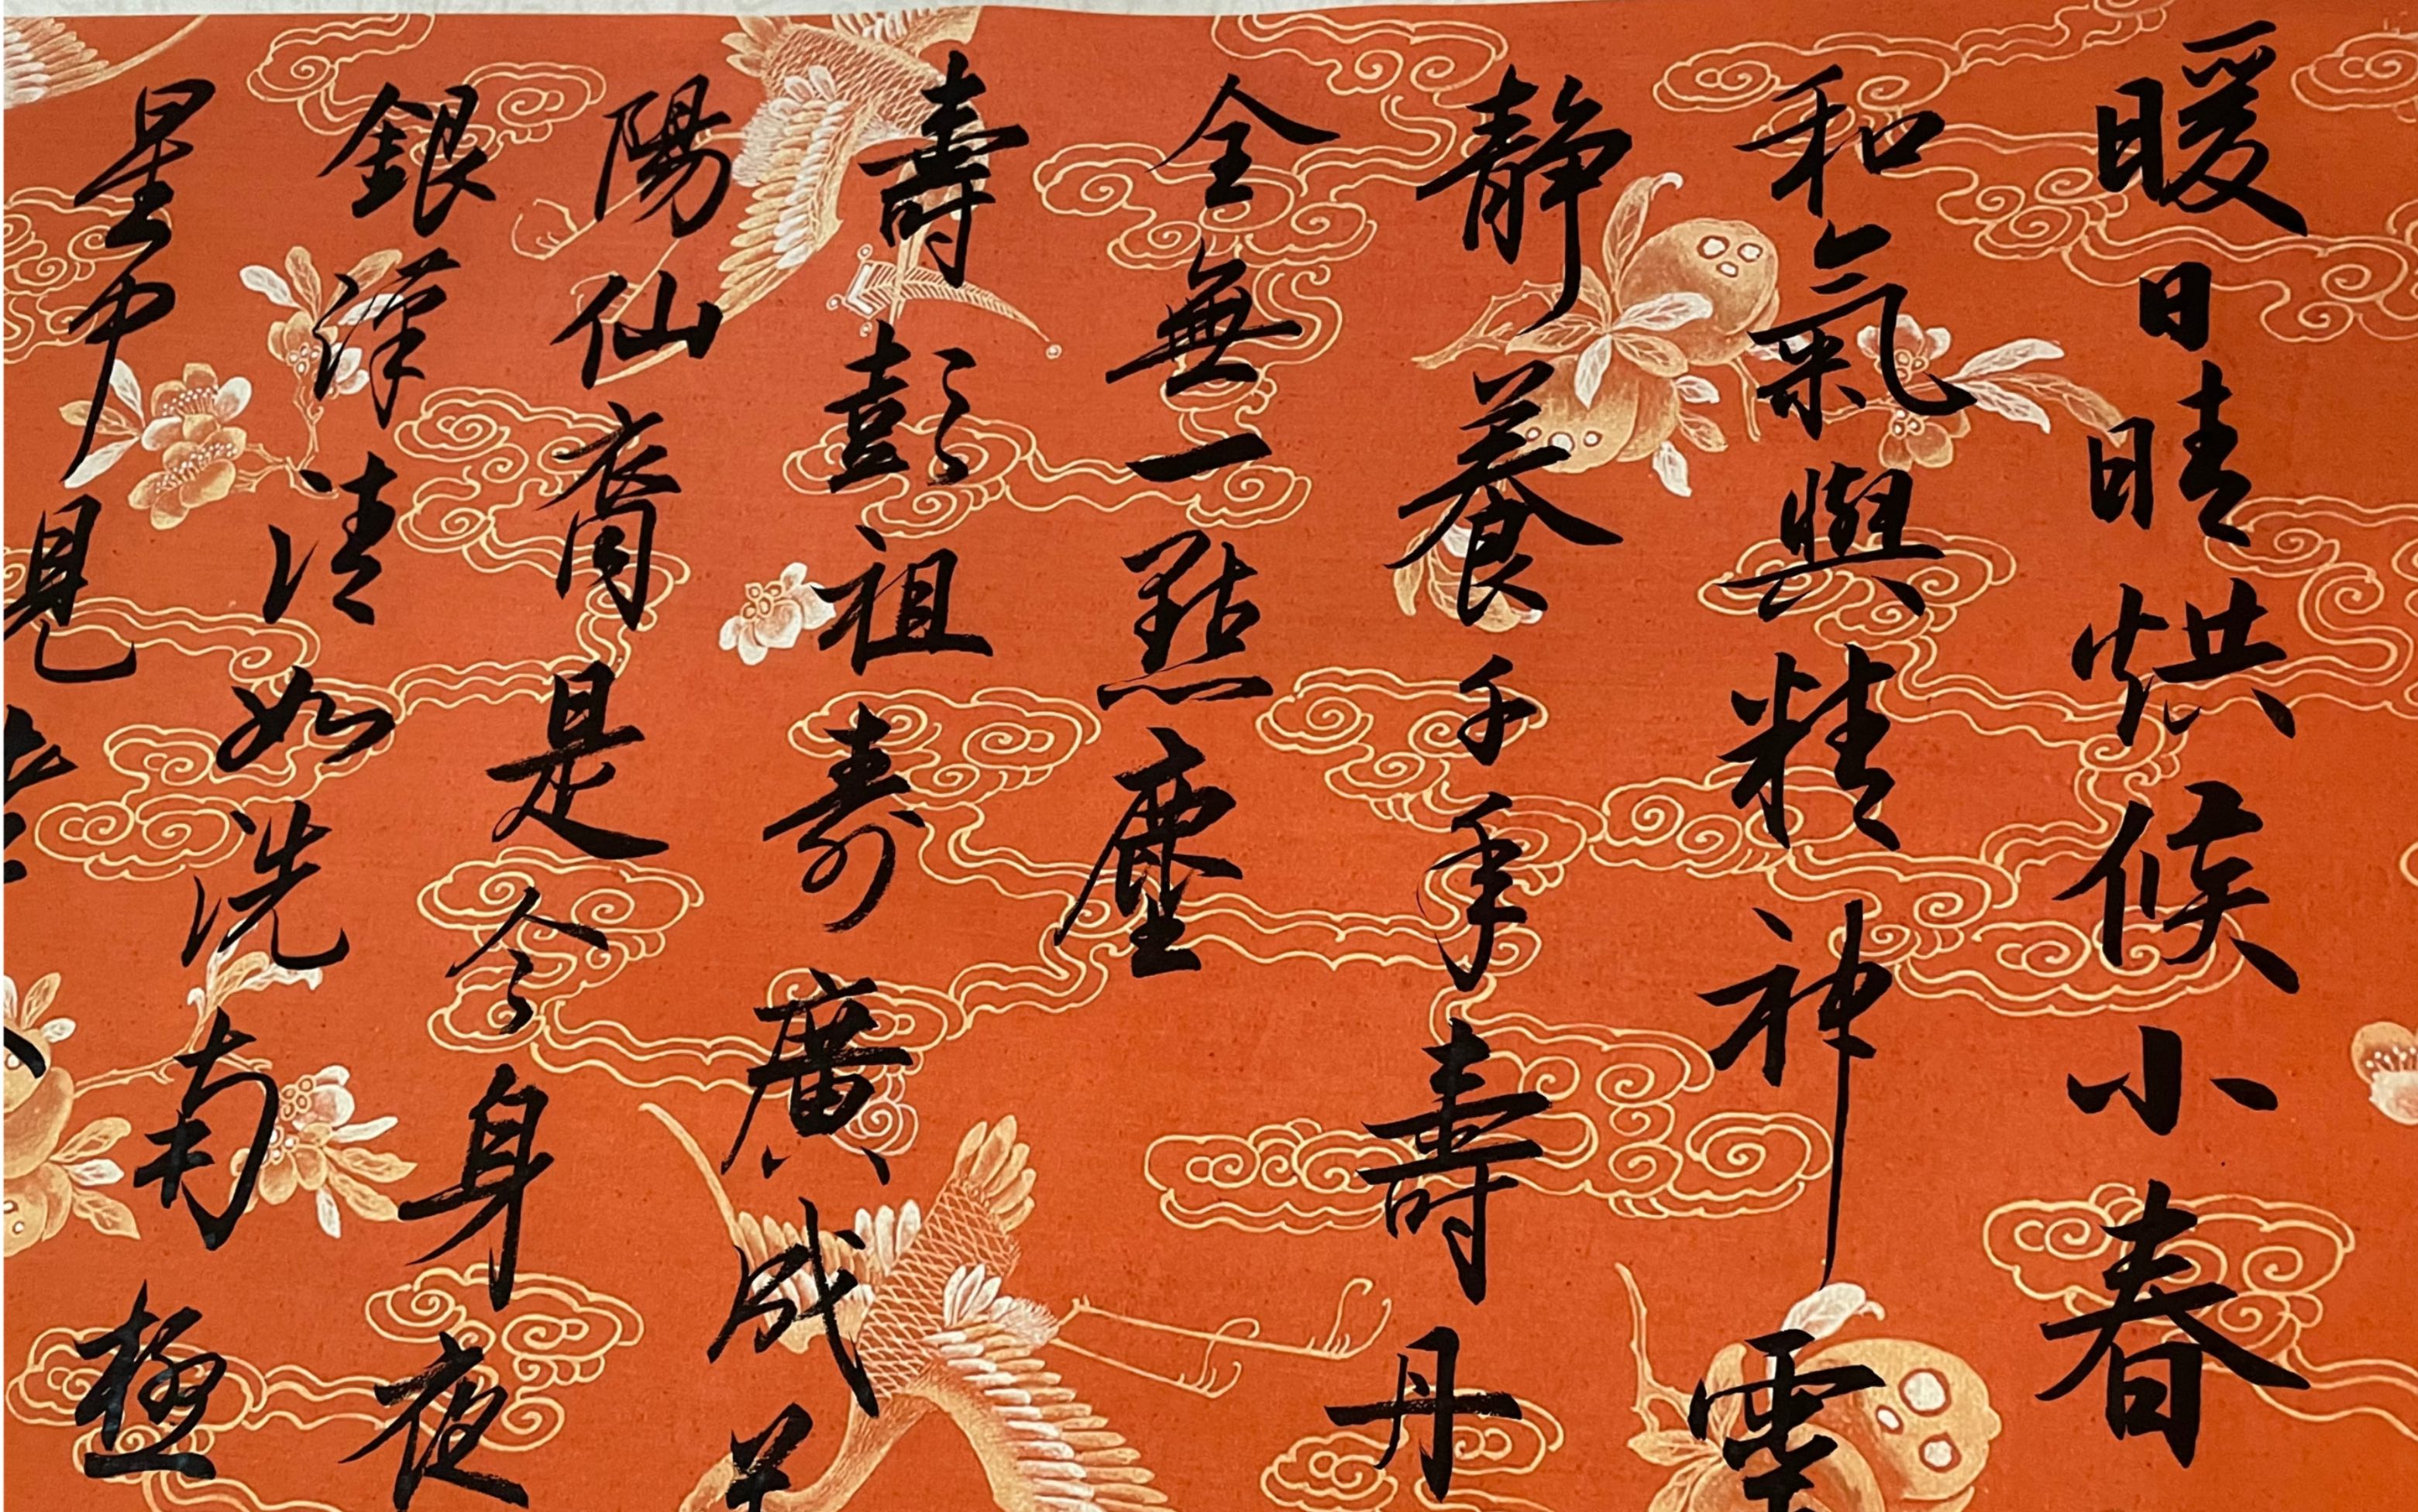 暖日晴烘候小春
和氣與精神
静養千年壽丹
全無一點塵
壽彭祖壽廣成
陽仙裔是今身夜
銀漢清如洗南極
星中見